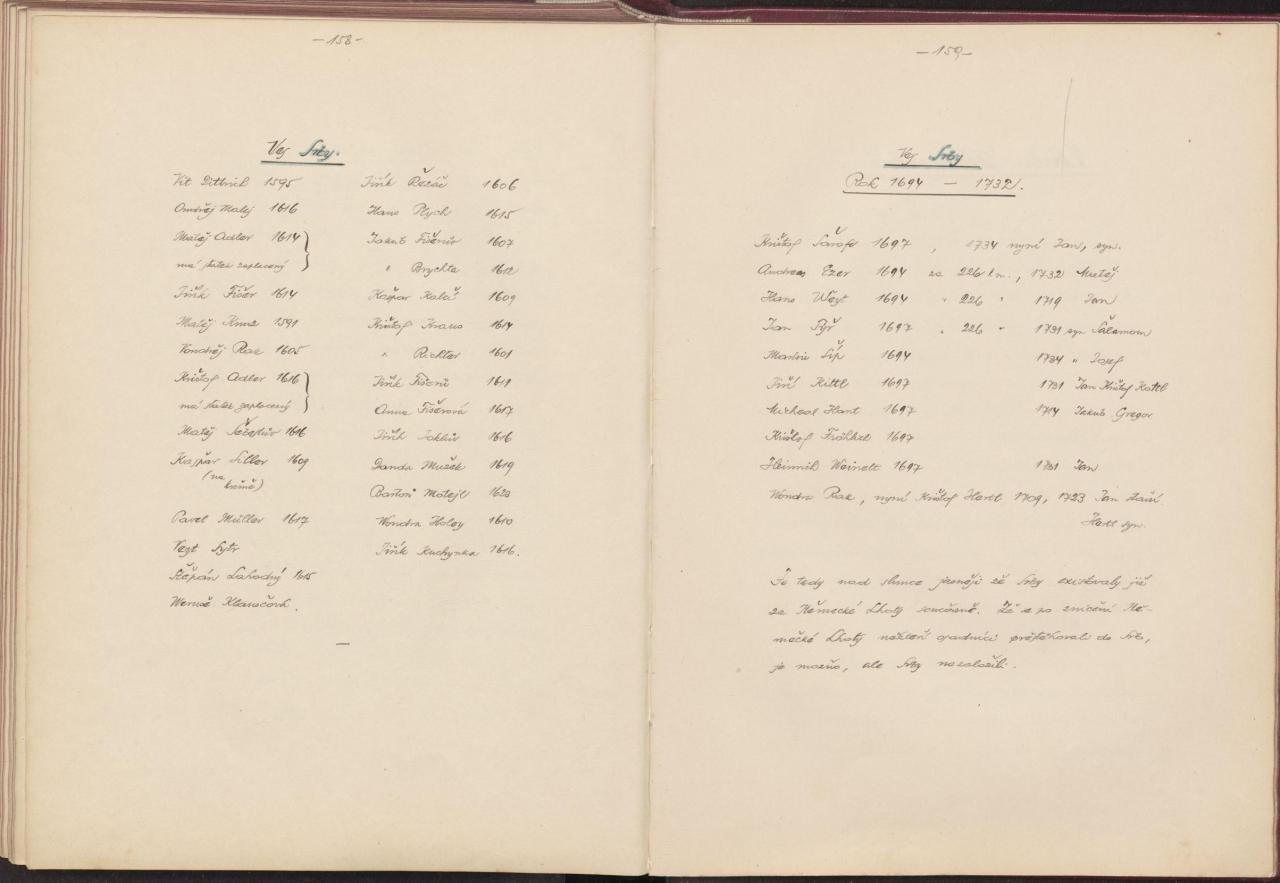 -158-
Ves Srby.
Vít Dittrich 1595
Ondřej Matěj 1616
Matěj Adler 1614
má statek zaplacený
Jiřík Fišer 1614
Matěj Kunz 1591
Vondřej Rak 1605
Krištof Adler 1616
má statek zaplacený
Matěj 1616
Kašpar Siller 1609
(na krčmě)
Pavel Müller 1617
Veyt Sytr
Štěpán Lahodný 1615
Jiřík Řezáč 1606
Hans Plych 1615
Jakub Fišerův 1607
" Brychta 1612
Kašpar Kolář 1609
Krištof Kraus 1614
" Richter 1601
Jiřík 1611
Anna Fišerová 1617
Jiřík Jaklův 1616
Mušek 1619
Bartoň Matejl 1623
Wondra Holey 1610
Jiřík Kuchynka 1616.
-159-
Ves Srby
Rok 1694 - 1732.
Krištof 1697, 1734 nyní Jan, syn.
Andreas Ezer 1694 za 226 kn., 1732 Matěj
Hans Weyt 1694 " 226 " 1719 Jan
Jan Syř 1697 " 226 " 1731 syn Šalamoun
Martin Šíp 1694 1734 " Josef
Jiří Kittl 1697 1731 Jan Krištof Kottl
Micheal Hant 1697 1714 Jakub Gregor
Krištof Fröhkel 1697
Heinrich Weinelt 1697 1731 Jan
Vondra Rak, nyní Krištof Hartl 1709, 1723 Jan starší
Hartl syn.
Je tedy nad slunce jasnější že Srby existovaly již
za Německé Lhoty současně. Že se po zničení Ně-
mecké Lhoty někteří osadníci přestěhovali do Srb,
je možno, ale Srby nezaložili.